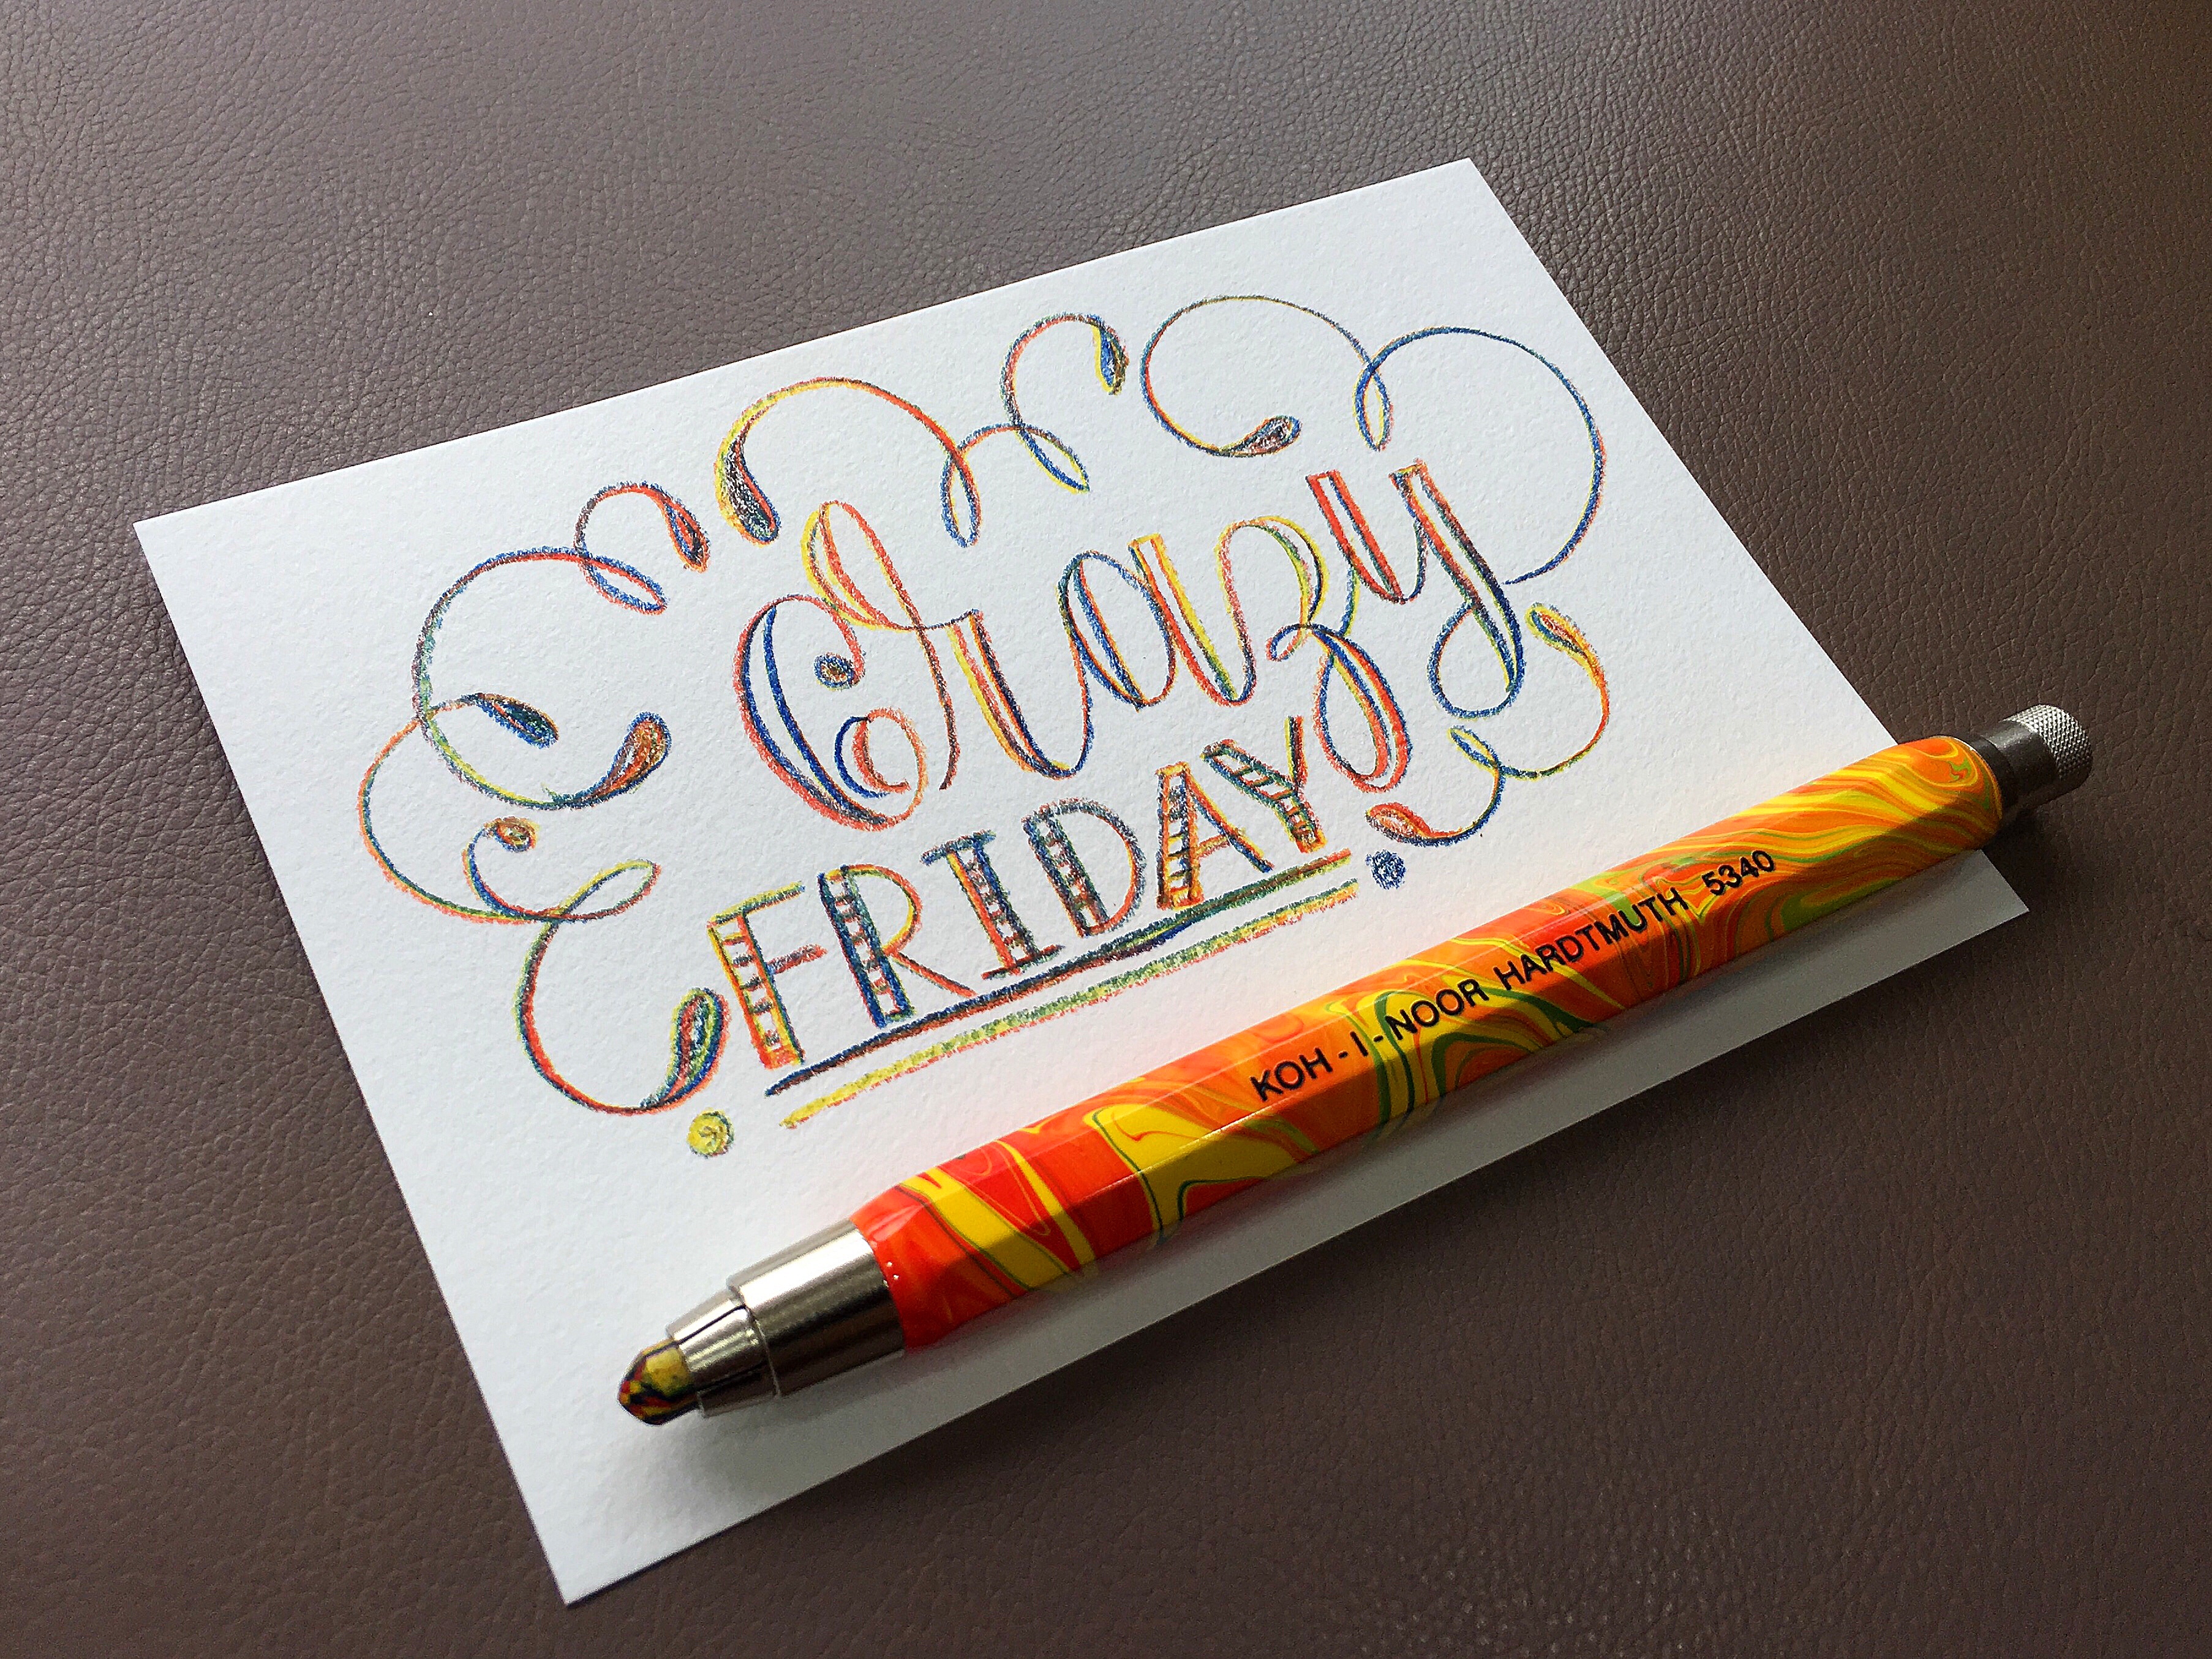 Crazy
FRIDAY
KOH-I-NOOR HARDTMUTH 5340